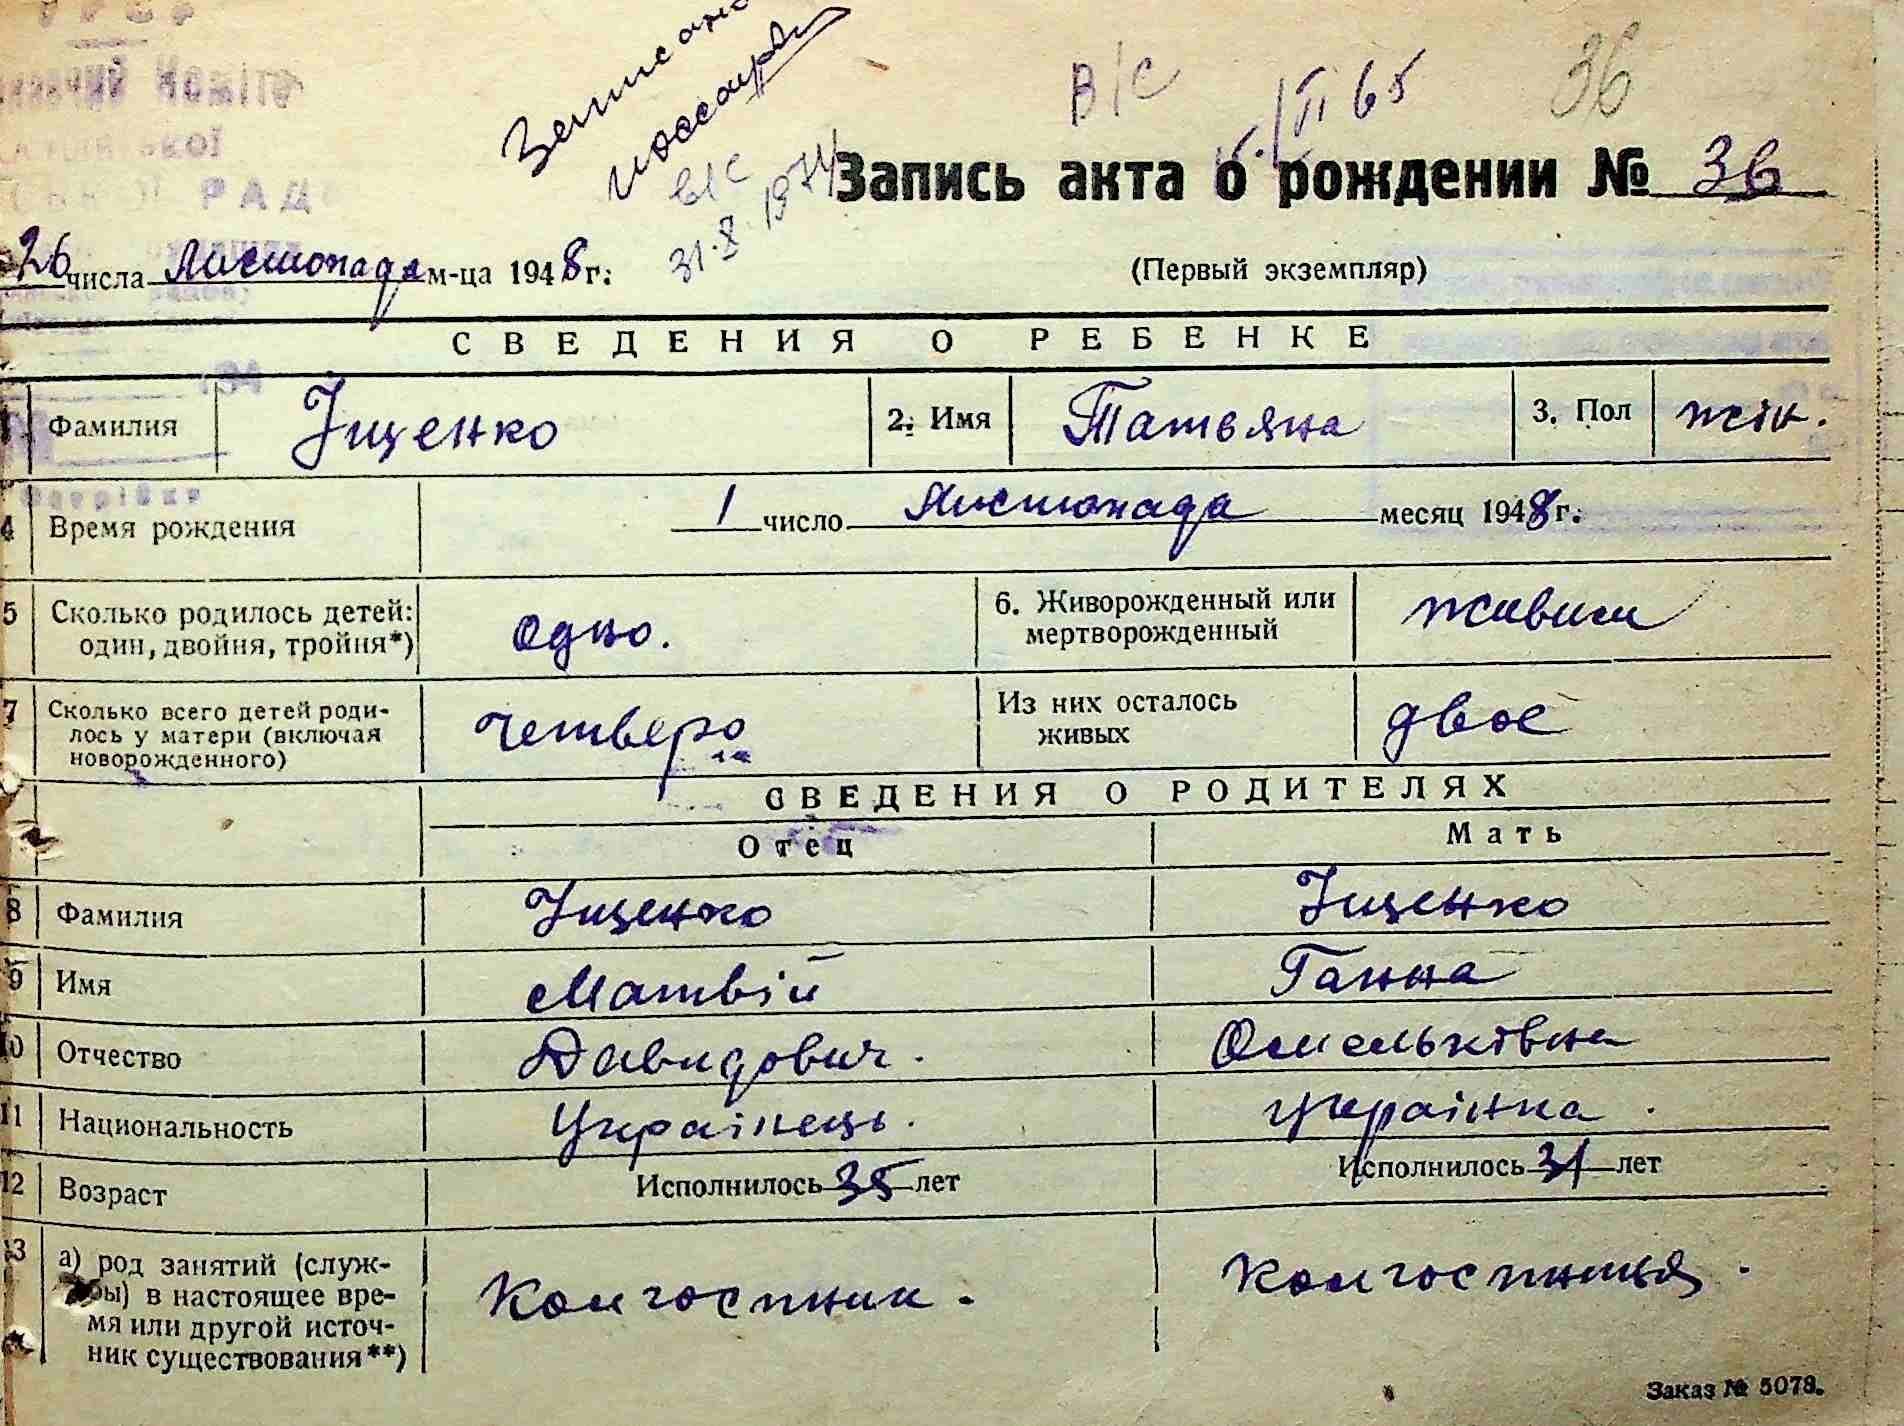 РАД
В/С
II 65
36
Записано
в/с
31.8.1974
Запись акта о рождении № 36
26 числа Листопада м-ца 1948 г.
(Первый экземпляр)
СВЕДЕНИЯ О РЕБЕНКЕ
1 Фамилия Іщенко 2. Имя Татьяна 3. Пол жін.
4 Время рождения 1 число Листопада месяц 1948 г.
5 Сколько родилось детей: один, двойня, тройня*) одно. 6. Живорожденный или мертворожденный живим
7 Сколько всего детей родилось у матери (включая новорожденного) четверо Из них осталось живых двое
СВЕДЕНИЯ О РОДИТЕЛЯХ
Отец Мать
8 Фамилия Іщенко Іщенко
9 Имя Матвій Ганна
10 Отчество Давидович. Омельківна
11 Национальность Українець. Українка.
12 Возраст Исполнилось 35 лет Исполнилось 31 лет
13 а) род занятий (службы) в настоящее время или другой источник существования**) Колгоспник. Колгоспниця.
Заказ № 5078.